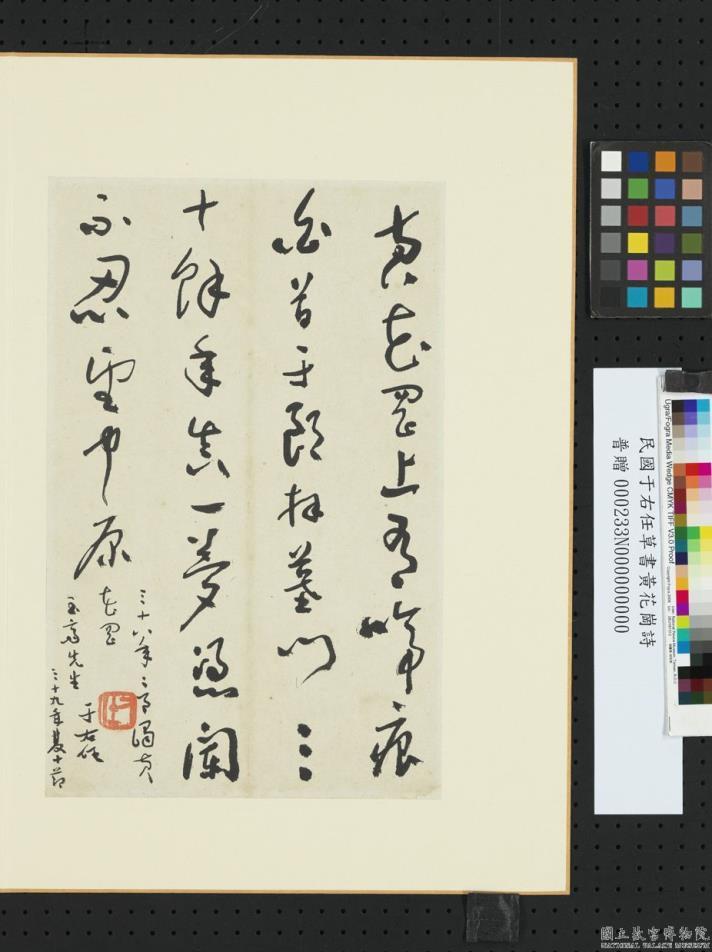 黃花岡上有啼痕
白首于郎拜墓門三
十餘年真一夢憑闌
不忍望中原
三十八年 謁黃
花岡
先生
于右任
三十九年雙十節
民國于右任草書黃花崗詩
普贈 000233N000000000
Ugra/Fogra Media Wedge CMYK TIFF V3.0 Proof
國立故宮博物院
NATIONAL PALACE MUSEUM